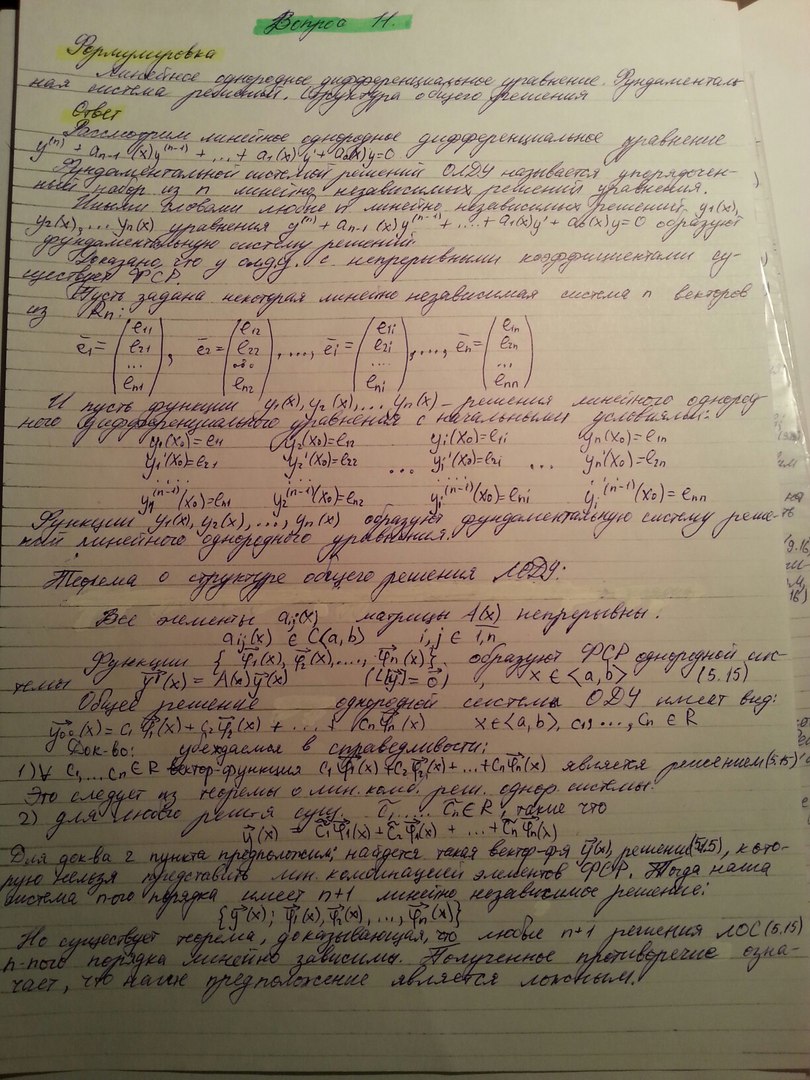 Вопрос 11.
Формулировка
Линейное однородное дифференциальное уравнение. Фундаменталь-
ная система решений. Структура общего решения
Ответ
Рассмотрим линейное однородное дифференциальное уравнение
y⁽ⁿ⁾ + aₙ₋₁(x)y⁽ⁿ⁻¹⁾ + ... + a₁(x)y' + a₀(x)y = 0
Фундаментальной системой решений ОЛДУ называется упорядочен-
ный набор из n линейно независимых решений уравнения.
Иными словами любые n линейно независимых решений y₁(x),
y₂(x), ... yₙ(x) уравнения y⁽ⁿ⁾ + aₙ₋₁(x)y⁽ⁿ⁻¹⁾ + ... + a₁(x)y' + a₀(x)y = 0 образуют
фундаментальную систему решений.
Доказано, что у олду. с непрерывными коэффициентами су-
ществует ФСР.
Пусть задана некоторая линейно независимая система n векторов
из Rₙ:
e̅₁ = (e₁₁ e₂₁ ... eₙ₁), e̅₂ = (e₁₂ e₂₂ ... eₙ₂), ..., e̅ᵢ = (e₁ᵢ e₂ᵢ ... eₙᵢ), ..., e̅ₙ = (e₁ₙ e₂ₙ ... eₙₙ)
И пусть функции y₁(x), y₂(x), ..., yₙ(x) – решения линейного однород
ного дифференциального уравнения с начальными условиями:
y₁(x₀)=e₁₁ y₂(x₀)=e₁₂ yᵢ(x₀)=e₁ᵢ yₙ(x₀)=e₁ₙ
y₁'(x₀)=e₂₁ y₂'(x₀)=e₂₂ ... yᵢ'(x₀)=e₂ᵢ ... yₙ'(x₀)=e₂ₙ
.... .... .... ....
y₁⁽ⁿ⁻¹⁾(x₀)=eₙ₁ y₂⁽ⁿ⁻¹⁾(x₀)=eₙ₂ yᵢ⁽ⁿ⁻¹⁾(x₀)=eₙᵢ yᵢ⁽ⁿ⁻¹⁾(x₀)=eₙₙ
Функции y₁(x), y₂(x), ..., yₙ(x) образуют фундаментальную систему реше-
ний линейного однородного уравнения.
Теорема о структуре общего решения ЛОДУ:
Все элементы aᵢⱼ(x) матрицы A(x) непрерывны.
aᵢⱼ(x) ∈ C⟨a,b⟩ i,j ∈ 1,n
Функции {φ⃗₁(x), φ⃗₂(x), ..., φ⃗ₙ(x)} образуют ФСР однородной сис-
темы y⃗'(x) = A(x)y⃗(x) (L[y⃗] = 0⃗), x ∈ ⟨a,b⟩ (5.15)
Общее решение однородной системы ОДУ имеет вид:
y⃗₀₀(x) = c₁φ⃗₁(x) + c₂φ⃗₂(x) + ... + cₙφ⃗ₙ(x) x ∈ ⟨a,b⟩, c₁, ..., cₙ ∈ R
Док-во: убеждаемся в справедливости:
1) ∀ c₁, ... cₙ ∈ R вектор-функция c₁φ⃗₁(x) + c₂φ⃗₂(x) + ... + cₙφ⃗ₙ(x) является решением (5.15)
Это следует из теоремы о лин. комб. реш. однор. системы.
2) для любого реш-я сущ. c̃₁, ... c̃ₙ ∈ R, такие что
y⃗(x) = c̃₁φ⃗₁(x) + c̃₂φ⃗₂(x) + ... + c̃ₙφ⃗ₙ(x)
Для док-ва 2 пункта предположим, найдется такая вектор-ф-я y⃗(x), решение (5.15), кото-
рую нельзя представить лин. комбинацией элементов ФСР. Тогда наша
система n-ого порядка имеет n+1 линейно независимое решение:
{y⃗(x); φ⃗₁(x), φ⃗₂(x), ..., φ⃗ₙ(x)}
Но существует теорема, доказывающая, что любые n+1 решения ЛОС (5.15)
n-ного порядка линейно зависимы. Полученное противоречие озна-
чает, что наше предположение является ложным.